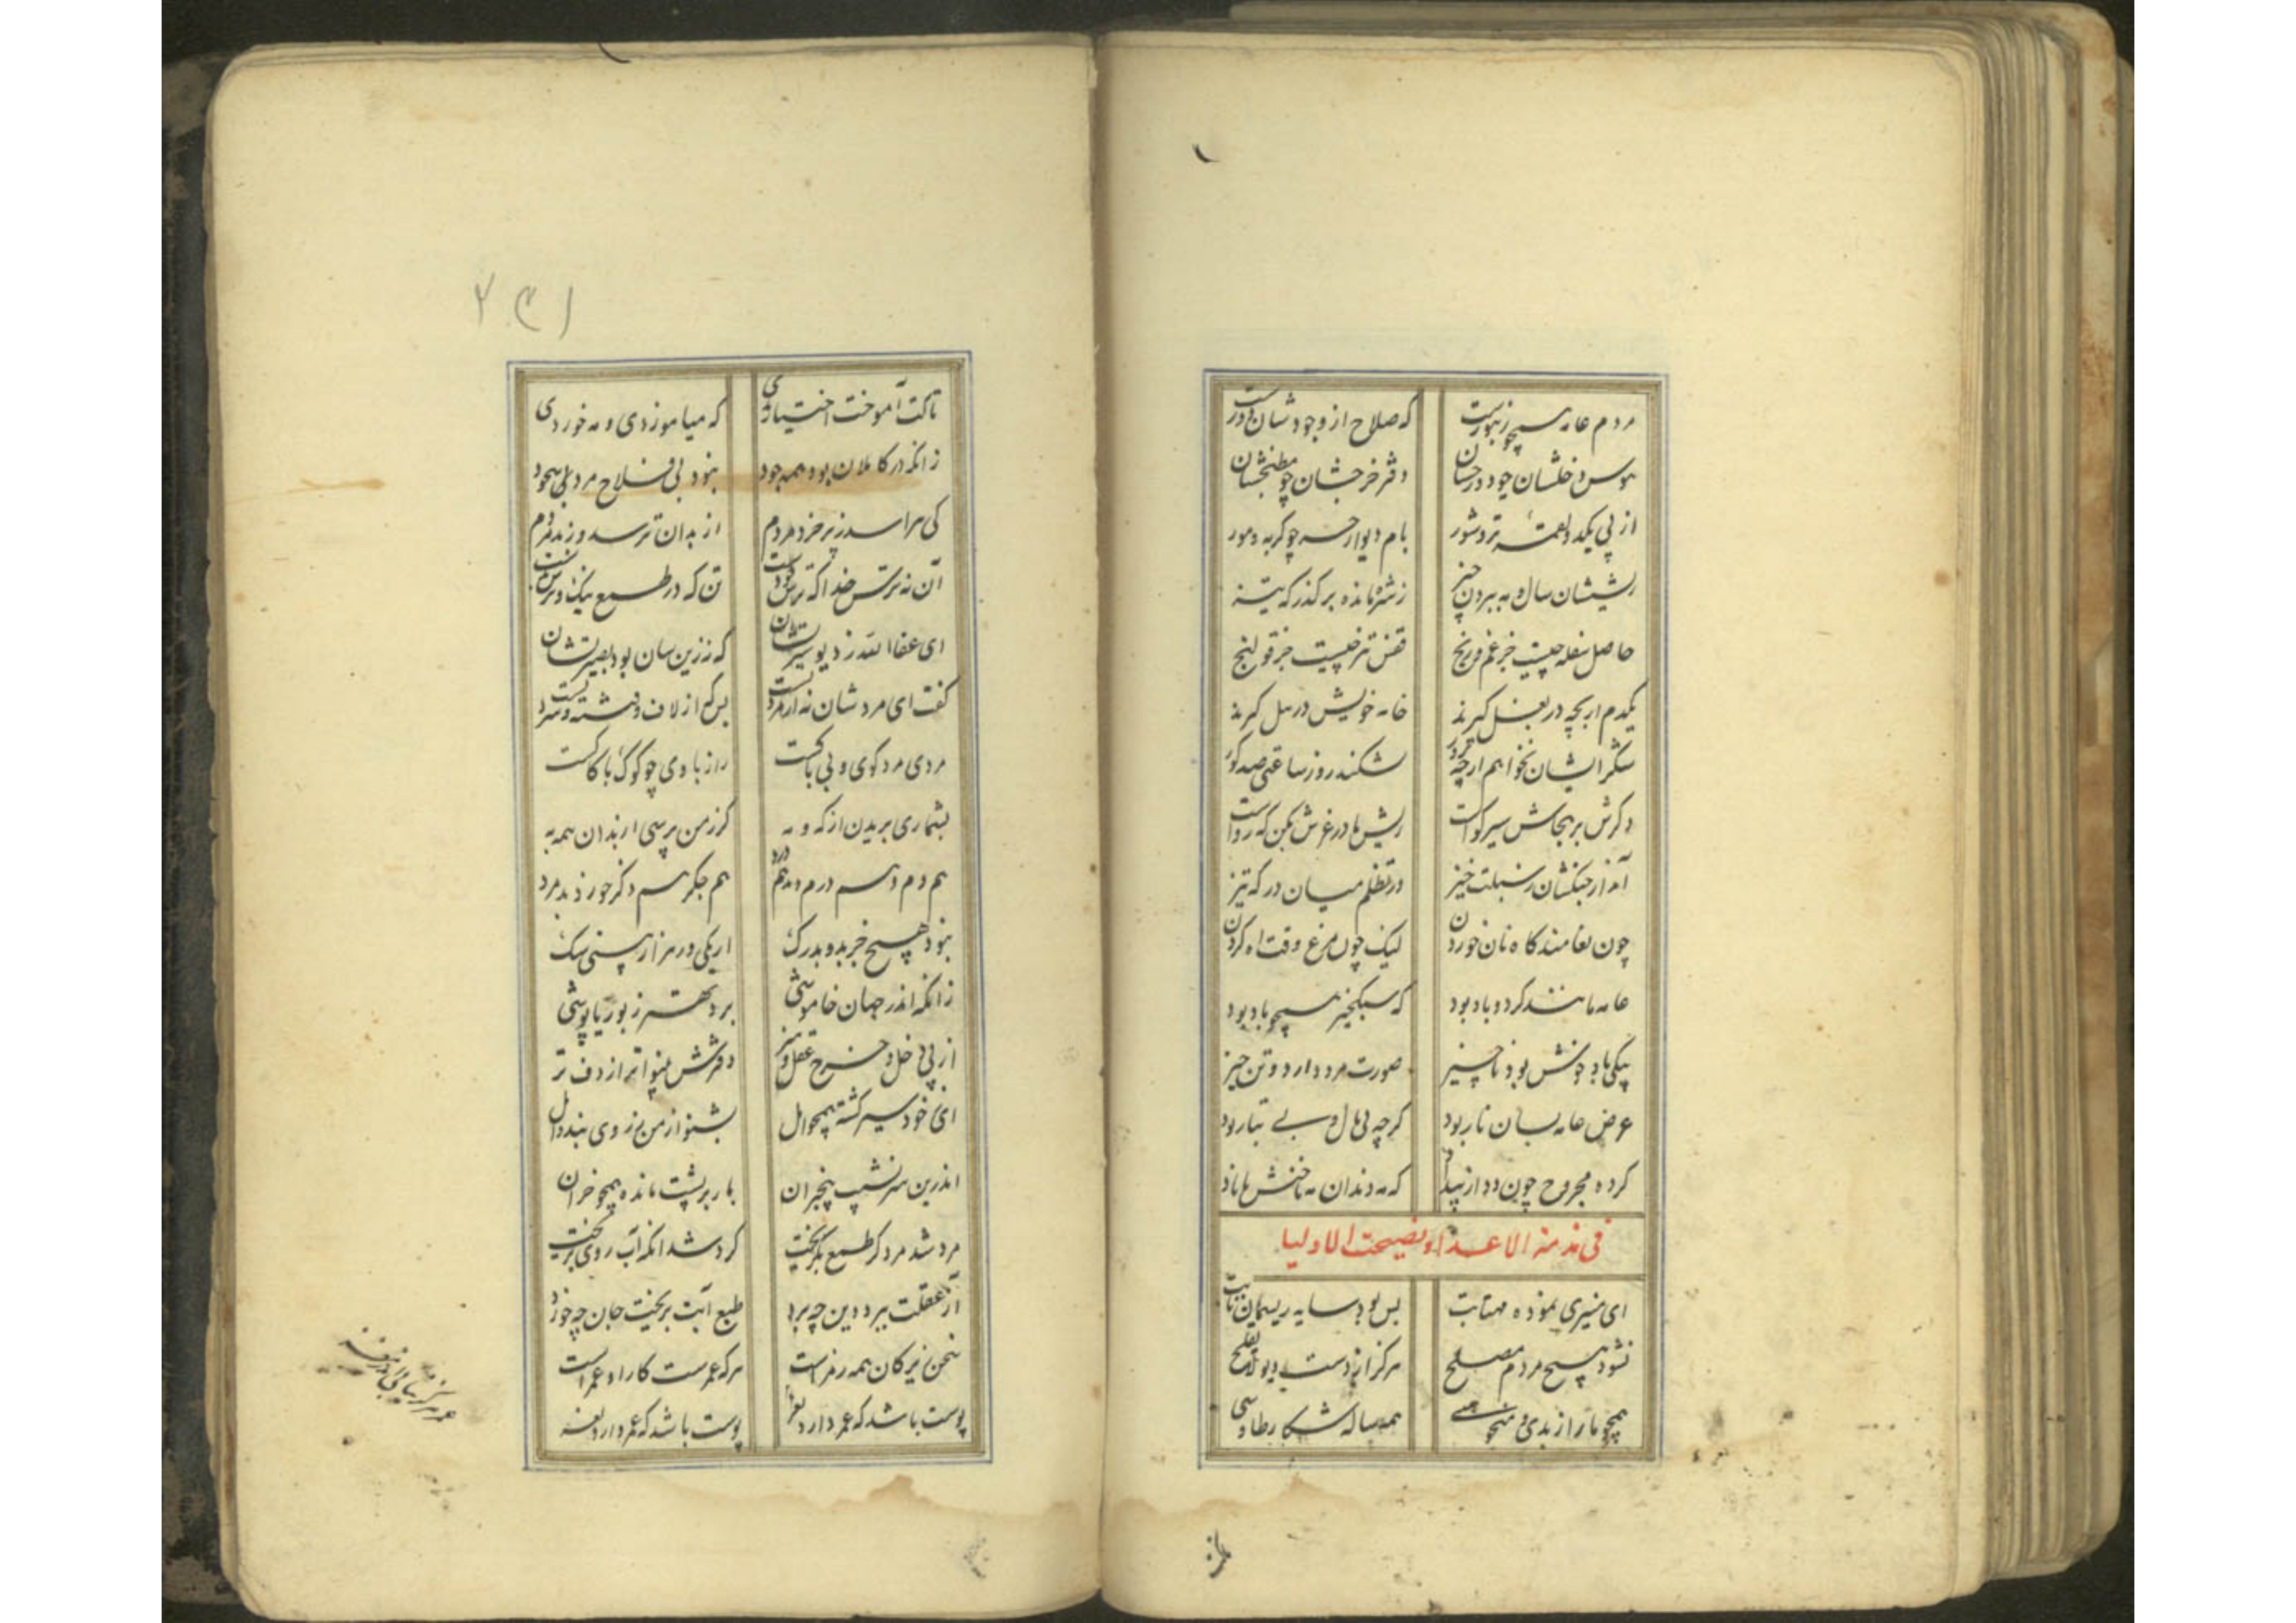 مردم عامه همچو زنبورست
که صلاح از وجودشان دورست
هوس دخلشان چو در حسان
دفتر خرجشان چو مطبخشان
از پی یکدو لقمه تر و شور
بام و دیوار حسه چو گربه و مور
ریششان سال و مه ببردن چیز
زشره مانده بر گذرگه تیز
حاصل سفله چیست جز غم و رنج
قفس تر چیست جز قولنج
یکدم ار بچه در بغل گیرند
خانه خویش در بل گیرند
شکر ایشان نخواهم ارچه گزد
شکند روز ساعتی صد کور
دگرش بر بجاش سیرکواست
ریش ها در غرش بکن که رواست
آمد از جنگشان سبلت خیز
در تظلم میان در که تیز
چون نعامند گاه نان خوردن
لیک چون مرغ وقت اه کردن
عامه مانند گرد و باد بود
که سبکخیز همچو باد بود
پیکی باد دونش بود ناچیز
صورت مرد دارد و تن حیز
عرض عامه بسان نار بود
گرچه بی مال و بی تبار بود
کرده مجروح چون دد از بیداد
که مه دندان مه ناخنش ماناد
فی مذمة الاعداء و نصیحت الاولیا
ای منیری نموده مهتابت
بس بود سایه ریسمان تابت
نشود هیچ مردم مصلح
هرگز از دست دیو لایفلح
همچو مار از بدی و منحوسی
همه ساله شکار طاوسی
۲۳۱
تاکت آموخت اختیار بدی
که میاموز دی و مه خور دی
زانکه در کاملان بود همه جود
نبود بی فلاح مرد بلی بیخود
کی هراسد ز پر خرد مردم
از بدان ترسد و ز بد مردم
آن نه ترس خدا که ترس خودست
تن که در طبع نیک و ترس بدست
ای عفا الله ز دیو سیرتشان
که ززین سان بود بصیرتشان
گفت ای مرد شان نه از مردیست
بس که از لاف و شسته و سردیست
مردی مرد گوی و بی باکست
راز با وی چو گوک با کاکست
بشماری بریدن از که و مه
گر ز من پرسی ار بدان همه به
هم دم و هم درم دهد هم درد
هم جگر هم دگر خورد بد مرد
نبود هیچ جز بد و بدرگ
ار یکی در هزار بینی سگ
زانکه اندر جهان خاموشی
برد بهتر ز بوریا پوشی
از پی دخل و خرج عقل و هنر
دفترش بینواتر از دف تر
ای ز خود سیر گشته همچو اهل
بشنو از من ز روی پند و امل
اندرین سرنشیب پنجبران
بار بر پشت مانده همچو خران
مرد شد مرد کز طمع بگریخت
گرد شد انکه آب روی بریخت
آز عقلت ببرد دین چه برد
طمع آبت بریخت جان چه خورد
سخن زیرکان همه رمز است
هر که عمرست کار او غمز است
پوست باشد که عمر دارد نغز
پوست باشد که عمر دارد نغز